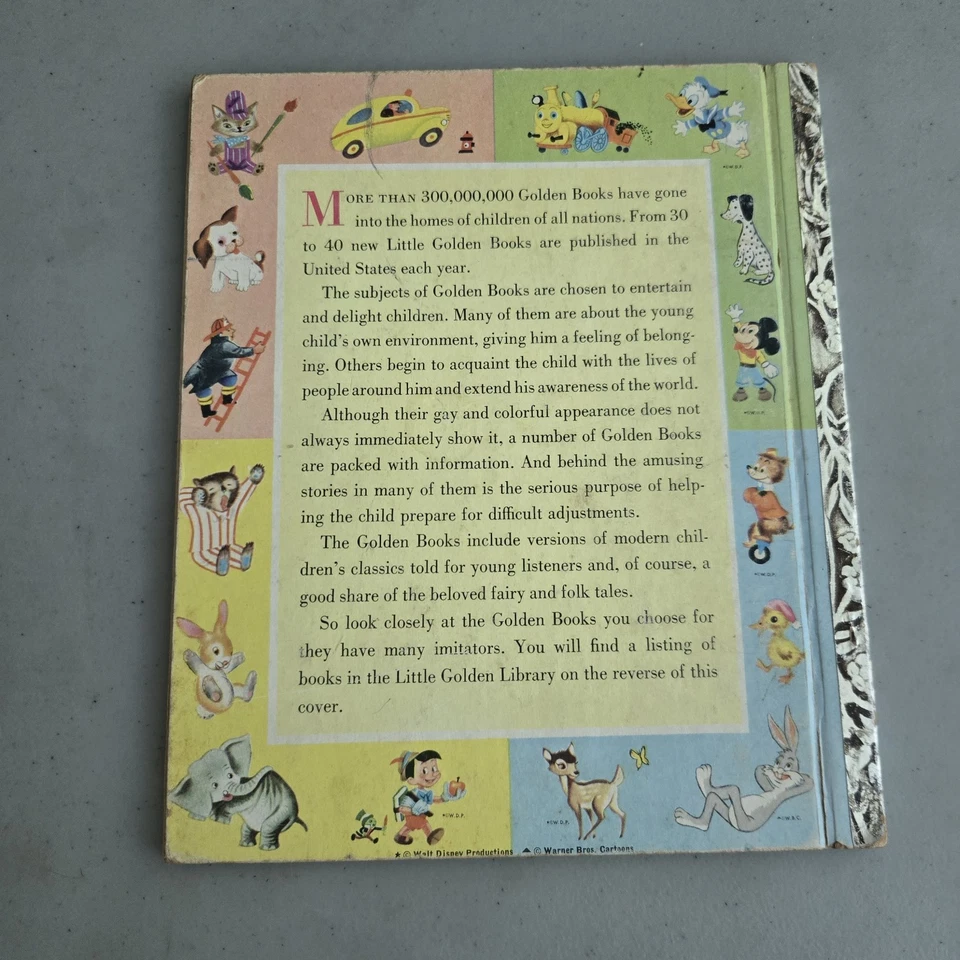 MORE THAN 300,000,000 Golden Books have gone
into the homes of children of all nations. From 30
to 40 new Little Golden Books are published in the
United States each year.
The subjects of Golden Books are chosen to entertain
and delight children. Many of them are about the young
child's own environment, giving him a feeling of belong-
ing. Others begin to acquaint the child with the lives of
people around him and extend his awareness of the world.
Although their gay and colorful appearance does not
always immediately show it, a number of Golden Books
are packed with information. And behind the amusing
stories in many of them is the serious purpose of help-
ing the child prepare for difficult adjustments.
The Golden Books include versions of modern chil-
dren's classics told for young listeners and, of course, a
good share of the beloved fairy and folk tales.
So look closely at the Golden Books you choose for
they have many imitators. You will find a listing of
books in the Little Golden Library on the reverse of this
cover.
★ © Walt Disney Productions ▲ © Warner Bros. Cartoons